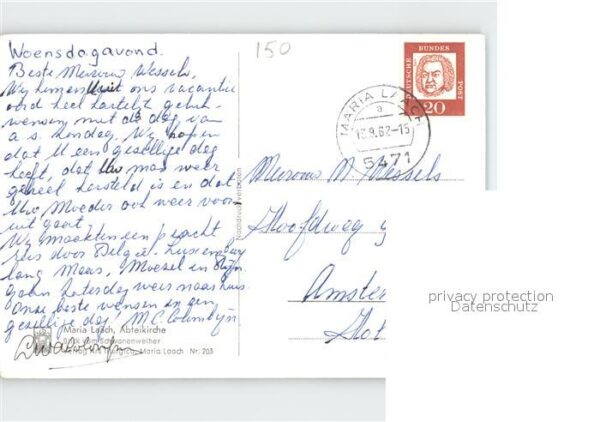 Woensdagavond.
150
Beste Mevrouw Wessels,
Wij kunnen U uit ons vacantie
oord heel hartelijk geluk-
wensen met de dag van
a.s. Zondag. Wij hopen
dat U een gezellige dag
heeft, dat Uw man weer
geheel hersteld is en dat
Uw Moeder ook weer voor-
uit gaat.
Wij maakten een pracht
reis door België, Luxemburg
lang Maas, Moezel en Rijn.
gaan Zaterdag weer naar huis.
Onze beste wensen en een
gezellige dag! M.C.
Maria Laach, Abteikirche
Blick vom Schwanenweiher
Verlag Ars liturgica, Maria Laach Nr. 203
Nachdruck verboten
DEUTSCHE BUNDES POST
20
MARIA LAACH
a
12.9.62-15
5471
Mevrouw M. Wessels
Hoofdweg
Amster
privacy protection
Datenschutz